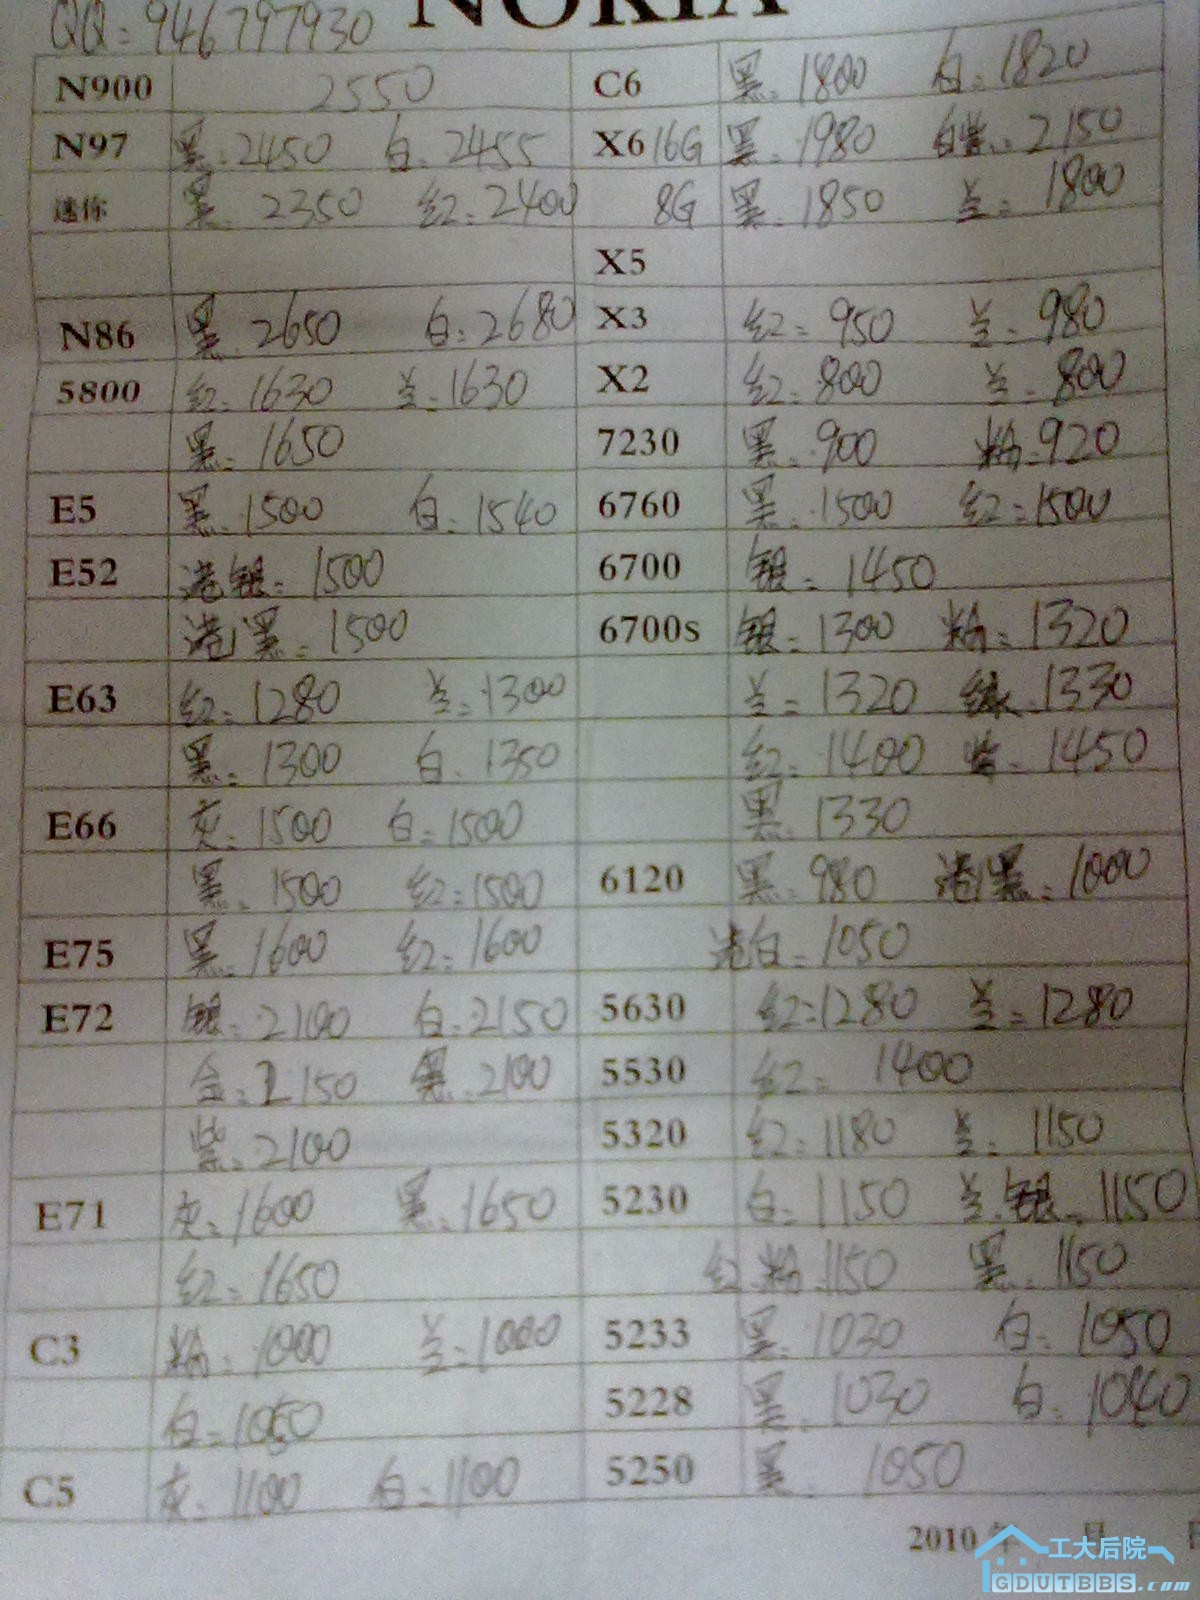 QQ: 946797930
NOKIA
N900 2550 C6 黑:1800 白:1820
N97 黑:2450 白:2455 X6 16G 黑:1980 白紫:2150
迷你 黑:2350 红:2400 8G 黑:1850 兰:1800
X5
N86 黑:2650 白:2680 X3 红:950 兰:980
5800 红:1630 兰:1630 X2 红:800 兰:800
黑:1650 7230 黑:900 粉:920
E5 黑:1500 白:1540 6760 黑:1500 红:1500
E52 港银:1500 6700 银:1450
港黑:1500 6700s 银:1300 粉:1320
E63 红:1280 兰:1300 兰:1320 绿:1330
黑:1300 白:1350 红:1400 紫:1450
E66 灰:1500 白:1500 黑:1330
黑:1500 红:1500 6120 黑:980 港黑:1000
E75 黑:1600 红:1600 港白:1050
E72 银:2100 白:2150 5630 红:1280 兰:1280
金:2150 黑:2100 5530 红:1400
紫:2100 5320 红:1180 兰:1150
E71 灰:1600 黑:1650 5230 白:1150 兰.银:1150
红:1650 红.粉:1150 黑:1150
C3 粉:1000 兰:1000 5233 黑:1030 白:1050
白:1050 5228 黑:1030 白:1040
C5 灰:1100 白:1100 5250 黑:1050
2010 年 月 日
工大后院
GDUTBBS.com